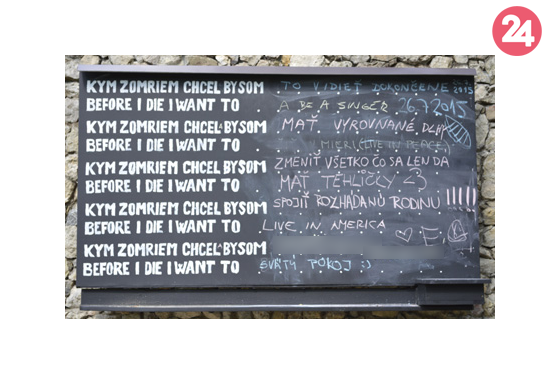 24
KYM ZOMRIEM CHCEL BY SOM TO VIDIEŤ DOKONČENÉ
BEFORE I DIE I WANT TO A BE A SINGER 26.7.2015
KYM ZOMRIEM CHCEL BY SOM MAŤ VYROVNANÉ DLHY
BEFORE I DIE I WANT TO MIERI (LIVE IN PEACE)
KYM ZOMRIEM CHCEL BY SOM ZMENIŤ VŠETKO ČO SA LEN DÁ
BEFORE I DIE I WANT TO MAŤ TEHLIČKY <3
KYM ZOMRIEM CHCEL BY SOM SPOJIŤ ROZHÁDANÚ RODINU !!!!!
BEFORE I DIE I WANT TO LIVE IN AMERICA
KYM ZOMRIEM CHCEL BY SOM
BEFORE I DIE I WANT TO SVÄTÝ POKOJ :)